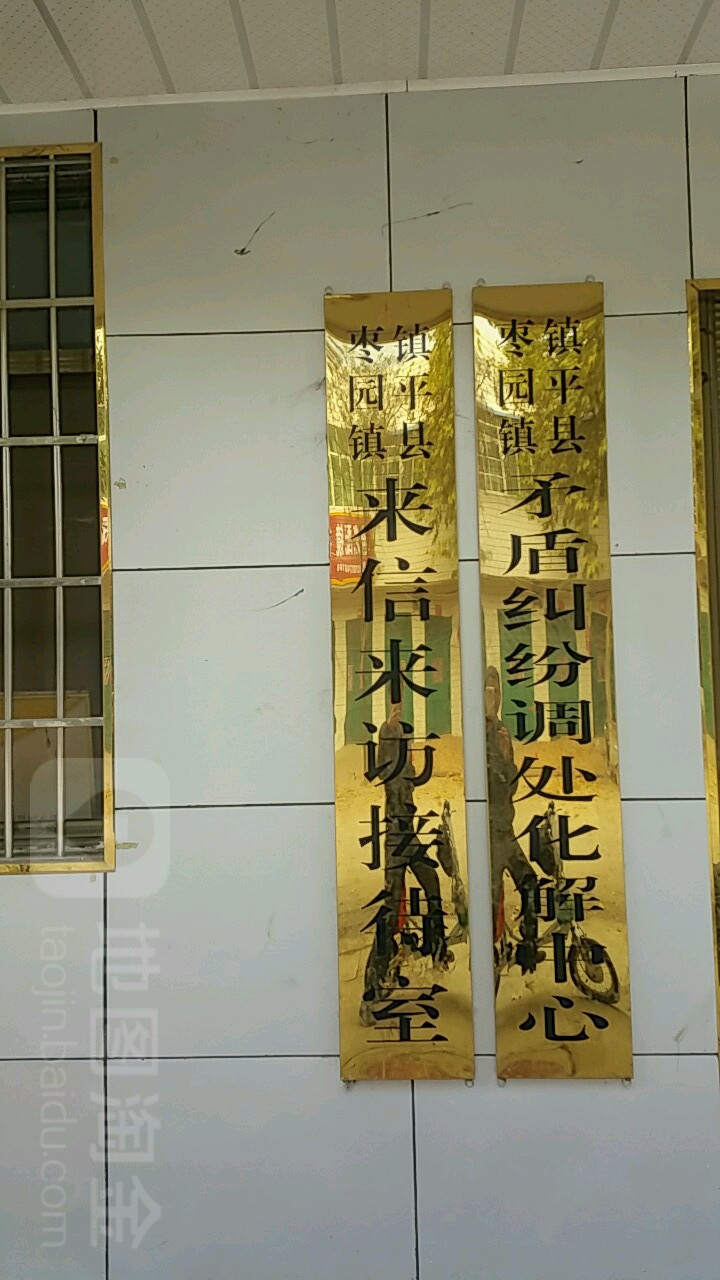 镇平县
枣园镇
矛盾纠纷调处化解中心
镇平县
枣园镇
来信来访接待室
地图淘金
taojin.baidu.com